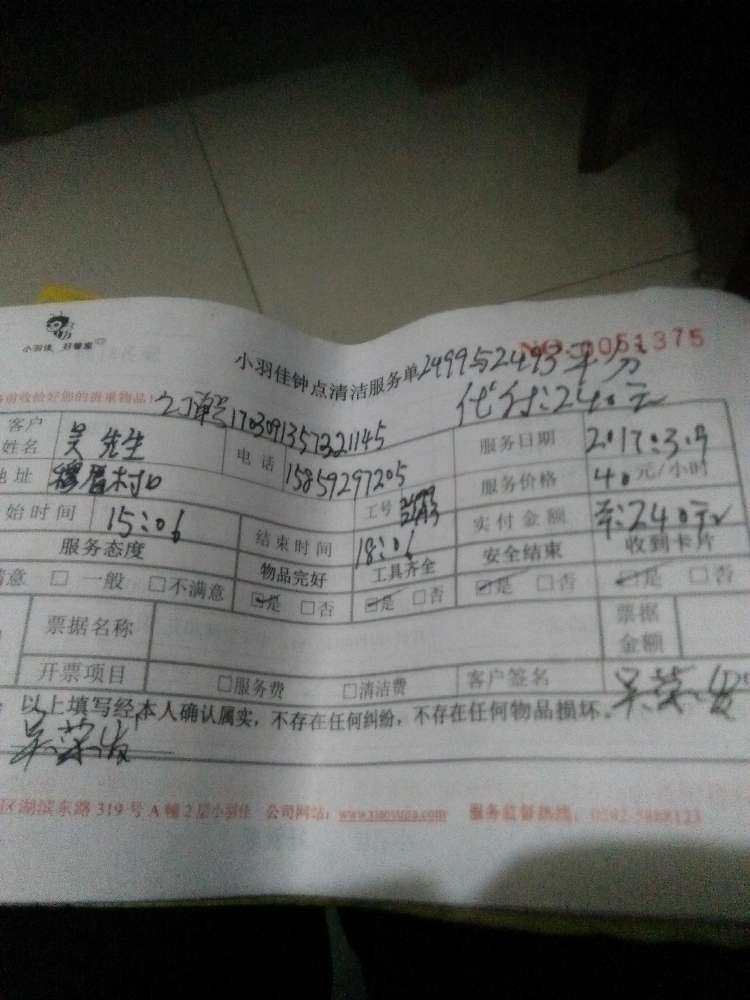 小羽佳 好管家
小羽佳钟点清洁服务单 2499与2493平分
NO 0051375
代付:240元
前收拾好您的贵重物品!
订单号170309135732145
客户姓名 吴先生 电话 15859297205 服务日期 2017:3:9
地址 村口 服务价格 40元/小时
始时间 15:06 结束时间 18:06 工号 实付金额 240元
服务态度 物品完好 工具齐全 安全结束 收到卡片
意 □一般 □不满意 ☑是 □否 ☑是 □否 ☑是 □否 ☑是 □否
票据名称 票据金额
开票项目 □服务费 □清洁费 客户签名 吴荣发
以上填写经本人确认属实,不存在任何纠纷,不存在任何物品损坏。
吴荣发
区湖滨东路319号A幢2层小羽佳 公司网站: www.xiaoyujia.com 服务监督热线: